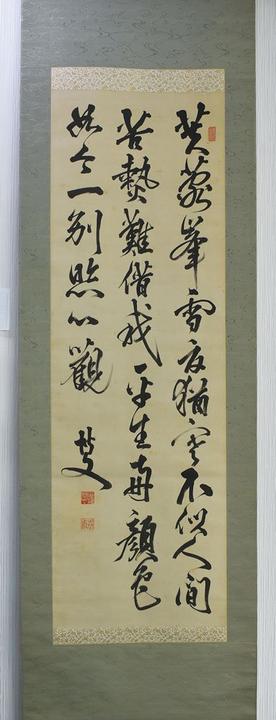 芙蓉峯雪夏猶寒不似人間
苦熱難借我平生顏色
如今一別照心觀